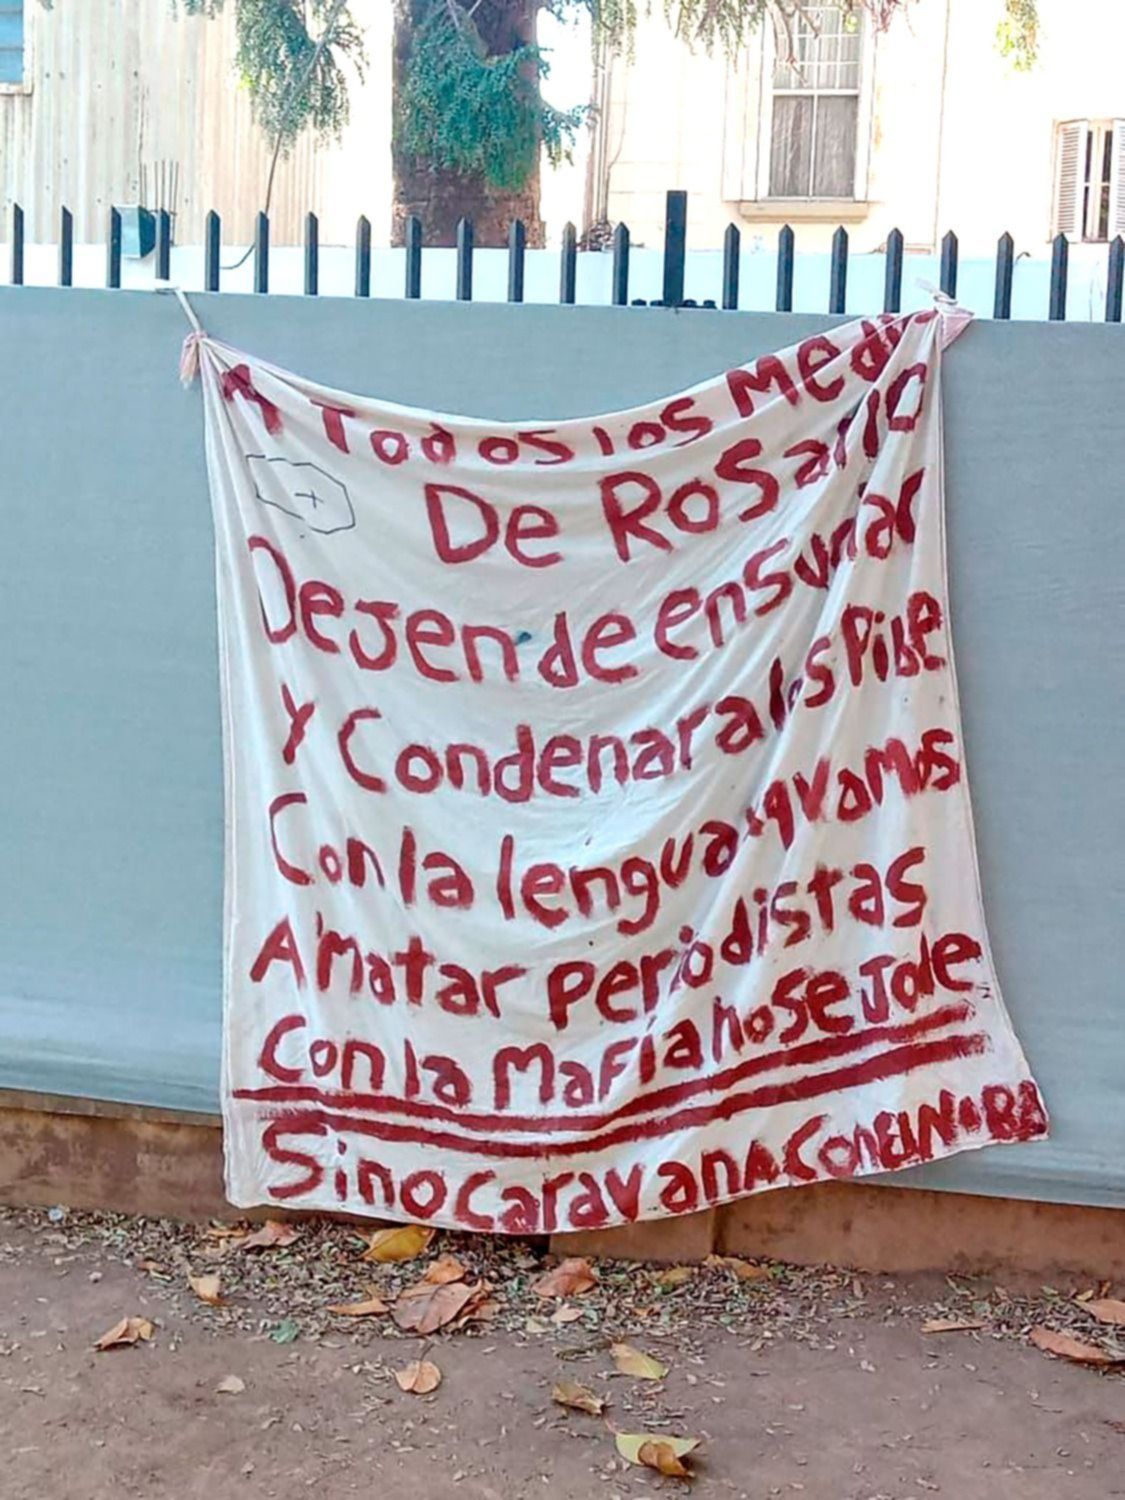 A Todos los Medio
De Rosario
Dejen de ensuciar
y Condenar a los Pibe
Con la lengua x q vamos
A Matar Periodistas
Con la Mafia no se Jode
Sino Caravana Con el